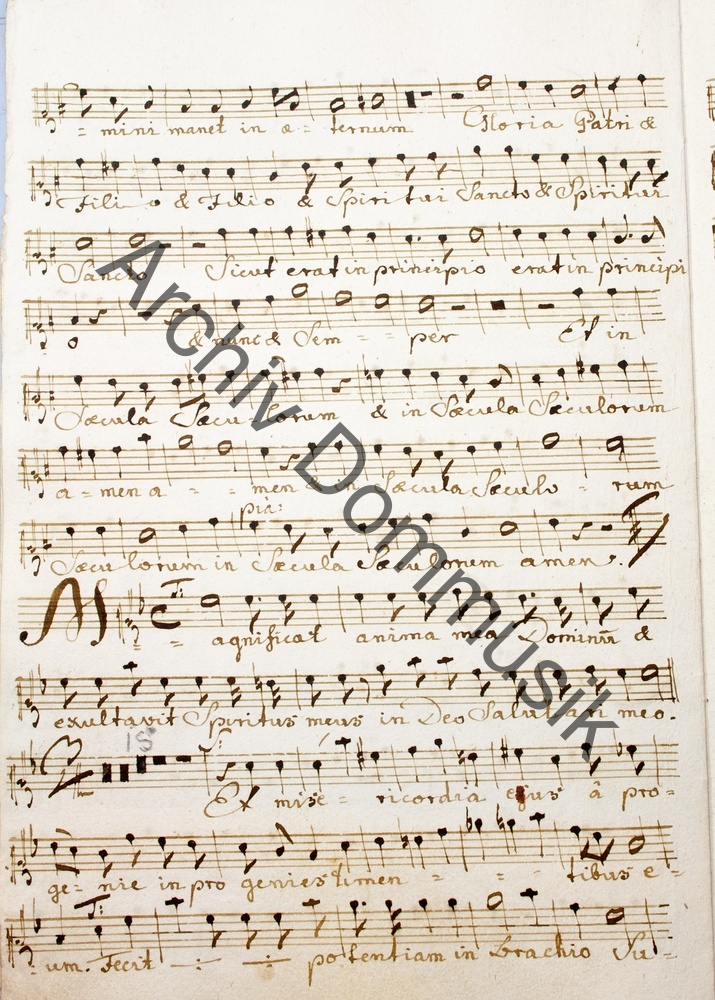 = mini manet in æ - ternum Gloria Patri &
Fili - o & Filio & Spiritui Sancto & Spiritui
Sancto Sicut erat in principio erat in principi
o & nunc & Sem - - per Et in
Sæcula Sæcu - lorum & in Sæcula Sæculorum
a - men a - - - men & in Sæcula Sæculo - rum
pia:
Sæculorum in Sæcula Sæculorum amen.
T:
M = agnificat anima mea Dominū &
exultavit Spiritus meus in Deo Salutari meo.
15
S:
Et mise - ricordia ejus â pro =
ge = nie in pro genies timen - - - tibus e =
T:
= um. Fecit -:- -:- potentiam in brachio Su =
Archiv Dommusik